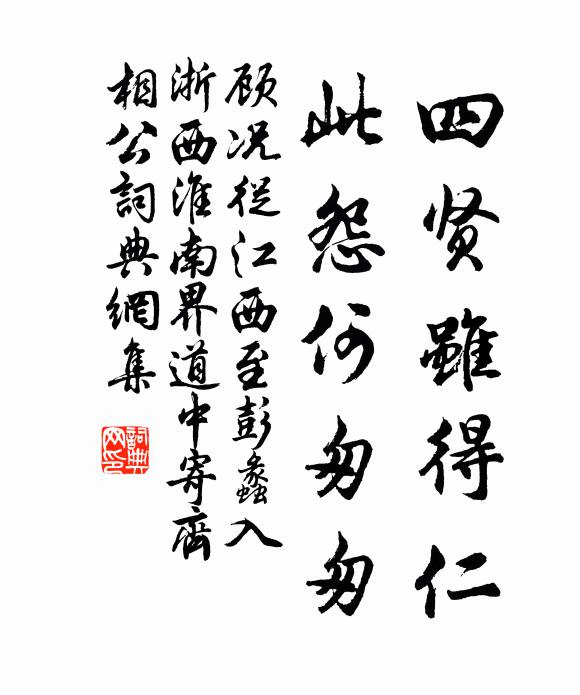 四贤雖得仁
此怨何匆匆
顾况從江西至彭蠡入
浙西淮南界道中寄齊
相公詞典網集
詞典
网印